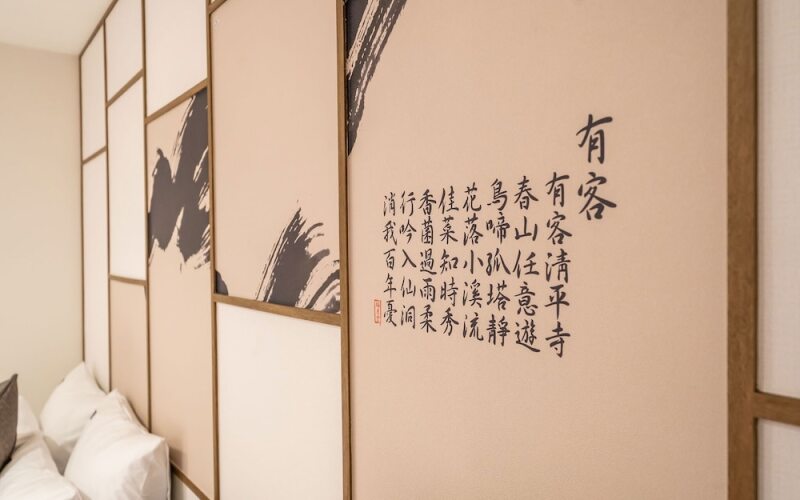 有客
有客清平寺
春山任意遊
鳥啼孤塔靜
花落小溪流
佳菜知時秀
香菌過雨柔
行吟入仙洞
消我百年憂